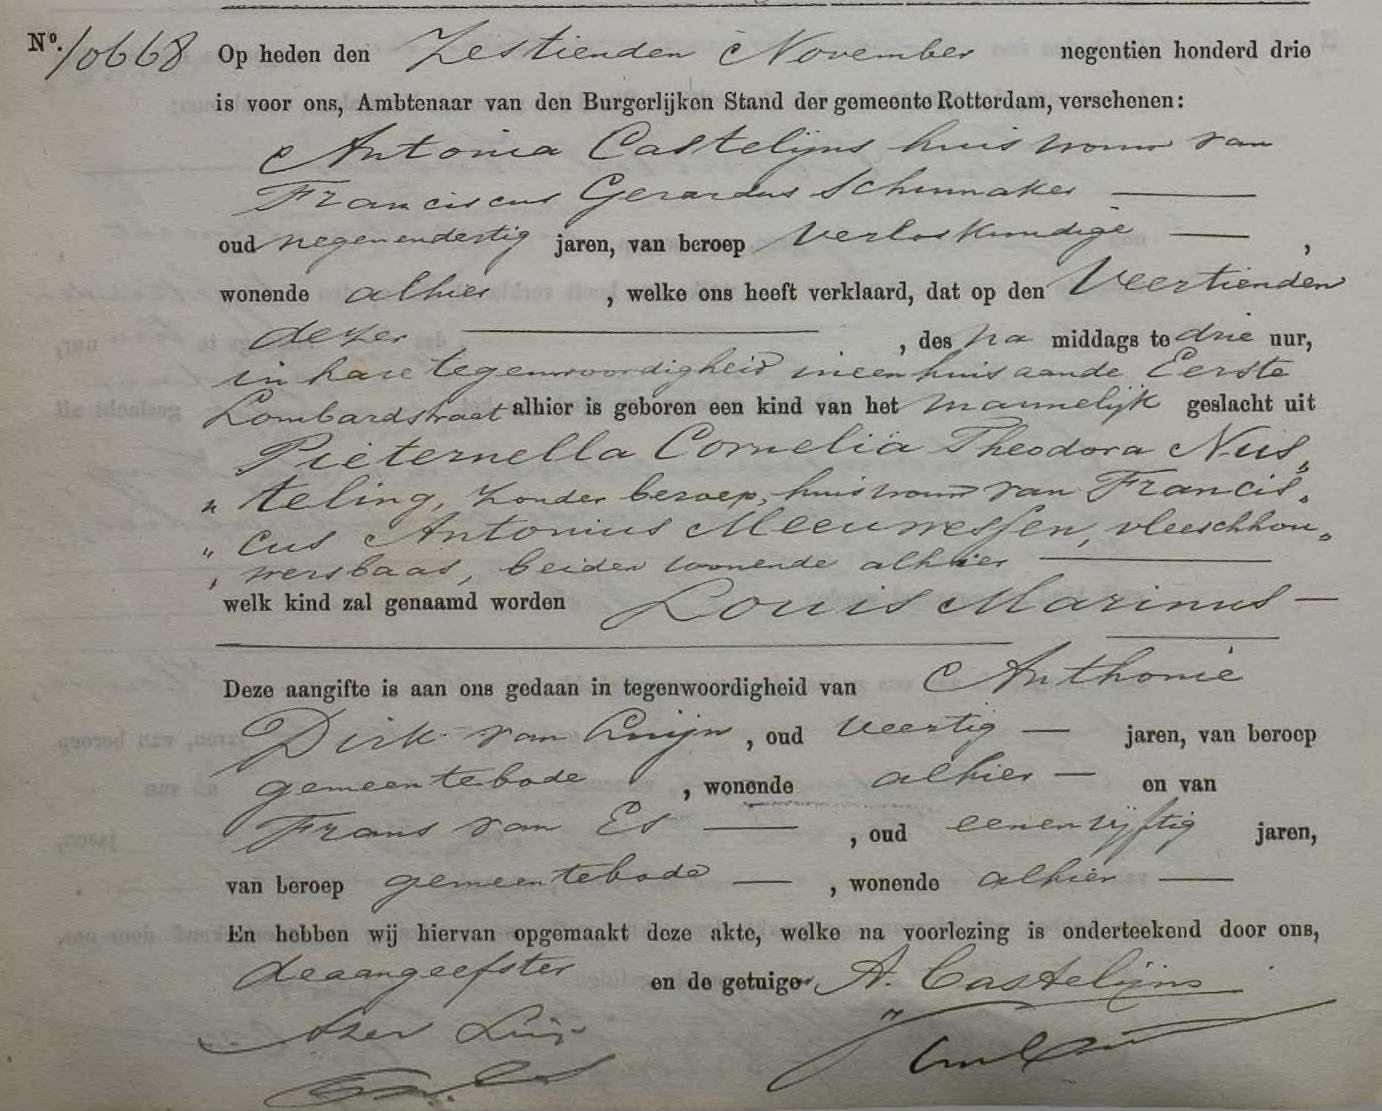 No. 10668 Op heden den Zestienden November negentien honderd drie
is voor ons, Ambtenaar van den Burgerlijken Stand der gemeente Rotterdam, verschenen:
Antonia Castelijns huisvrouw van
Franciscus Gerardus Schunnaker
oud negenendertig jaren, van beroep Verloskundige ,
wonende alhier , welke ons heeft verklaard, dat op den Veertienden
dezer , des na middags te drie uur,
in hare tegenwoordigheid in een huis aan de Eerste
Lombardstraat alhier is geboren een kind van het mannelijk geslacht uit
Pieternella Cornelia Theodora Nus„
„ teling, zonder beroep, huisvrouw van Francis„
„ cus Antonius Meeuwessen, vleeschhou„
„ wersbaas, beiden wonende alhier
welk kind zal genaamd worden Louis Marinus
Deze aangifte is aan ons gedaan in tegenwoordigheid van Anthonie
Dirk van Luijn , oud veertig jaren, van beroep
gemeentebode , wonende alhier en van
Frans van Es , oud eenenvijftig jaren,
van beroep gemeentebode , wonende alhier
En hebben wij hiervan opgemaakt deze akte, welke na voorlezing is onderteekend door ons,
de aangeefster en de getuigen A. Castelijns